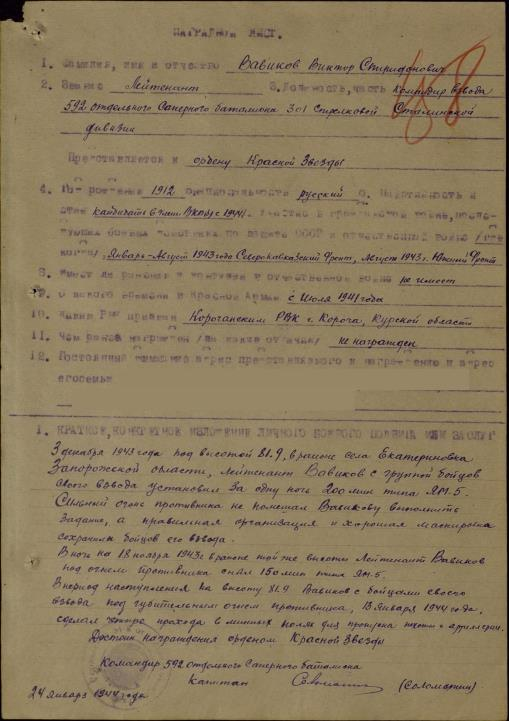 НАГРАДНОЙ ЛИСТ.
48
1. Фамилия, имя и отчество Вавиков Виктор Спиридонович
2. Звание Лейтенант 3. Должность, часть Командир взвода
592 отдельного Саперного батальона 301 Стрелковой Сталинской
дивизии
Представляется к ордену Красной Звезды
4. Год рождения 1912 национальность русский 6. Партийность и
стаж кандидат в члены ВКП(б) с 1944 г. Участие в гражданской войне, после-
дующих боевых действиях по защите СССР и отечественной войне /где
когда/, Январь-Август 1943 года Северокавказский Фронт, Август 1943 г. Южный Фронт
8. Имеет ли ранения и контузии в отечественной войне не имеет
9. С какого времени в Красной Армии с Июля 1941 года
10. Каким РВК призван Корочанским РВК г. Короча, Курской области
11. Чем ранее награжден /за какие отличия/ не награжден
12. Постоянный домашний адрес представляемого к награждению и адрес
его семьи
1. КРАТКОЕ, КОНКРЕТНОЕ ИЗЛОЖЕНИЕ ЛИЧНОГО БОЕВОГО ПОДВИГА ИЛИ ЗАСЛУГ
3 декабря 1943 года под высотой 81.9, в районе села Екатериновка
Запорожской области, Лейтенант Вавиков с группой бойцов
своего взвода установил за одну ночь 200 мин типа ЯМ-5.
Сильный огонь противника не помешал Вавикову выполнить
задание, а правильная организация и хорошая маскировка
сохранили бойцов его взвода.
В ночь на 18 ноября 1943 г. в районе той же высоты Лейтенант Вавиков
под огнем противника снял 150 мин типа ЯМ-5.
В период наступления на высоту 81.9 Вавиков с бойцами своего
взвода под губительным огнем противника, 13 Января 1944 года,
сделал четыре прохода в минных полях для пропуска пехоты и артиллерии.
Достоин награждения орденом Красной Звезды
Командир 592 отдельного Саперного батальона
Капитан (Соломатин)
24 Января 1944 года